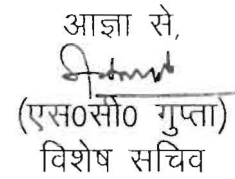 आज्ञा से,
(एस0सी0 गुप्ता)
विशेष सचिव